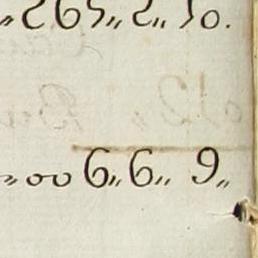 „265„ 2„ 10.
„ 00 6„ 6„ 9„